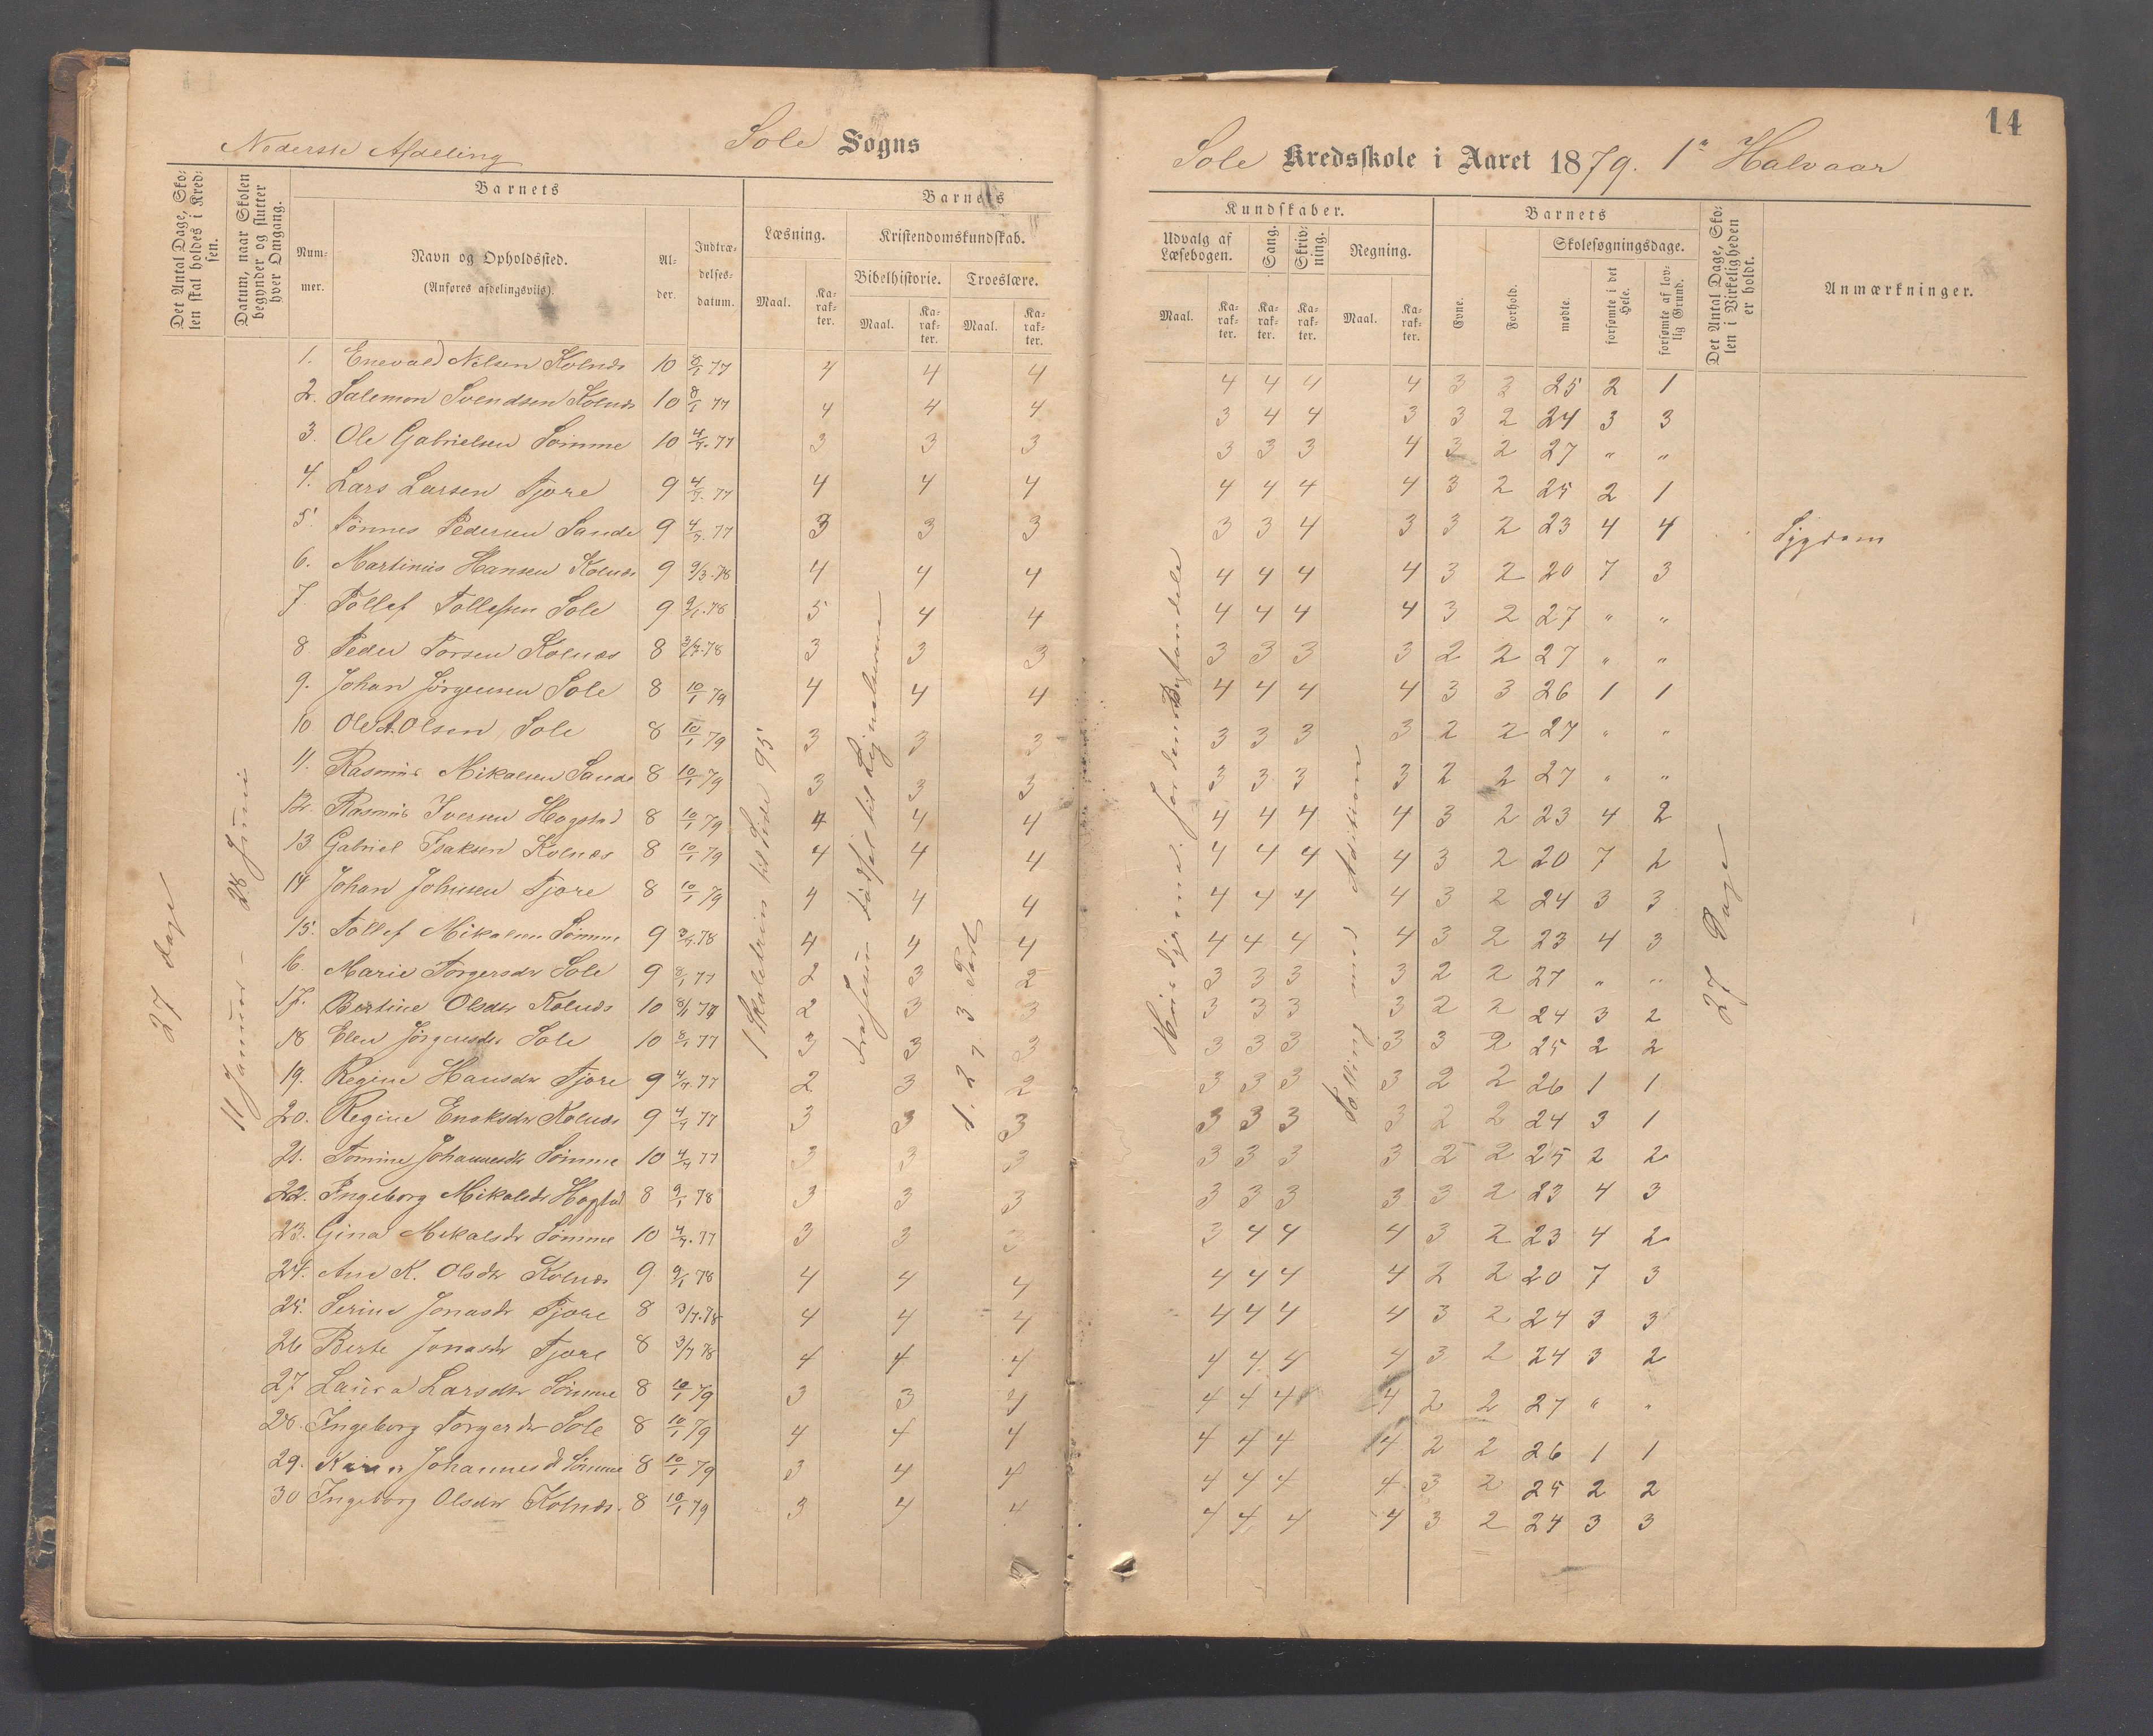 14
Nederste Afdeling
Sole Sogns
Sole Kredsskole i Aaret 1879. 1ste Halvaar
Det Antal Dage, Skolen skal holdes i Kredsen.
Datum, naar Skolen begynder og slutter hver Omgang.
Barnets
Nummer.
Navn og Opholdssted.
(Anføres afdelingsviis).
Alder.
Indtrædelsesdatum.
Barnets
Læsning.
Kristendomskundskab.
Bibelhistorie.
Troeslære.
Maal.
Karakter.
Maal.
Karakter.
Maal.
Karakter.
Kundskaber.
Udvalg af Læsebogen.
Sang.
Skrivning.
Regning.
Maal.
Karakter.
Karakter.
Karakter.
Maal.
Karakter.
Barnets
Evne.
Forhold.
Skolesøgningsdage.
mødte.
forsømte i det Hele.
forsømte af lovlig Grund.
Det Antal Dage, Skolen i Virkeligheden er holdt.
Anmærkninger.
27 dage
11 Januar - 28 Juni
1 Skoletrin til Side 95
Fra Jesu Fødsel til Lignelserne
1. 2 3 Part
Tælling med Adition
27 Dage
1. Enevald Nilsen Kolnæs 10 8/1 77 4 4 4 4 4 4 4 3 3 25 2 1
2. Salemon Svendsen Kolnæs 10 8/1 77 4 4 4 3 4 4 3 3 2 24 3 3
3. Ole Gabrielsen Sømme 10 4/7. 77 3 3 3 3 3 3 4 3 2 27 " "
4. Lars Larsen Tjore 9 4/7. 77 4 4 4 4 4 4 4 3 2 25 2 1
5. Tønnes Pedersen Sande 9 4/7. 77 3 3 3 3 3 4 3 3 2 23 4 4 Sygdom
6. Martinus Hansen Kolnæs 9 9/3. 78 4 4 4 4 4 4 4 3 2 20 7 3
7 Tollef Tollefsen Sole 9 9/1. 78 5 4 4 4 4 4 4 3 2 27 " "
8 Peder Torsen Kolnæs 8 3/7. 78 3 3 3 3 3 3 3 2 2 27 " "
9. Johan Jørgensen Sole 8 10/1 79 4 4 4 4 4 4 4 3 3 26 1 1
10 Ole A. Olsen Sole 8 10/1 79 3 3 3 3 3 3 3 2 2 27 " "
11. Rasmus Mikalsen Sande 8 10/1 79 3 3 3 3 3 3 3 2 2 27 " "
12. Rasmus Iversen Hogstad 8 10/1 79 4 4 4 4 4 4 4 3 2 23 4 2
13 Gabriel Isaksen Kolnæs 8 10/1 79 4 4 4 4 4 4 4 3 2 20 7 2
14 Johan Johnsen Tjore 8 10/1 79 4 4 4 4 4 4 4 3 2 24 3 3
15. Tollef Mikalsen Sømme 9 3/7. 78 4 4 4 4 4 4 4 3 2 23 4 3
16. Marie Torgersdr Sole 9 8/1 77 2 3 2 3 3 3 3 2 2 27 " "
17. Bertine Olsdtr Kolnæs 10 8/1 77 2 3 3 3 3 3 3 2 2 24 3 2
18 Elen Jørgensdr Sole 10 8/1 77 3 3 3 3 3 3 3 3 2 25 2 2
19. Regine Hansdtr Tjore 9 4/7. 77 2. 3 2 3 3 3 3 2 2 26 1 1
20. Regine Enoksdtr Kolnæs 9 4/7 77 3 3 3 3 3 3 3 2 2 24 3 1
21. Tomine Johannesdtr Sømme 10 4/7 77 3 3 3 3 3 3 3 2 2 25 2 2
22. Ingeborg Mikalsdtr Hogstad 8 9/1 78 3 3 3 3 3 3 3 3 2 23 4 3
23. Gina Mikalsdr Sømme 10 4/7. 77 3 3 3 3 4 4 4 3 2 23 4 2
24. Ane K. Olsdtr Kolnæs 9 9/1 78 4 4 4 4 4 4 4 2 2 20 7 3
25. Serine Jonasdr Tjore 8 3/7. 78 4 4 4 4 4 4 4 3 2 24 3 3
26 Berte Jonasdr Tjore 8 3/7 78 4 4 4 4 4 4 4 3 2 24 3 2
27 Laura Larsdtr Sømme 8 10/1 79 3 3 4 4 4 4 4 2 2 27 " "
28. Ingeborg Torgersdr Sole 8 10/1 79 4 4 4 4 4 4 4 2 2 26 1 1
29. Karen Johannesd Sømme 8 10/1 79 3 4 4 4 4 4 4 3 2 25 2 2
30 Ingeborg Olsdtr Kolnæs. 8 10/1 79 3 4 4 4 4 4 4 3 2 24 3 3